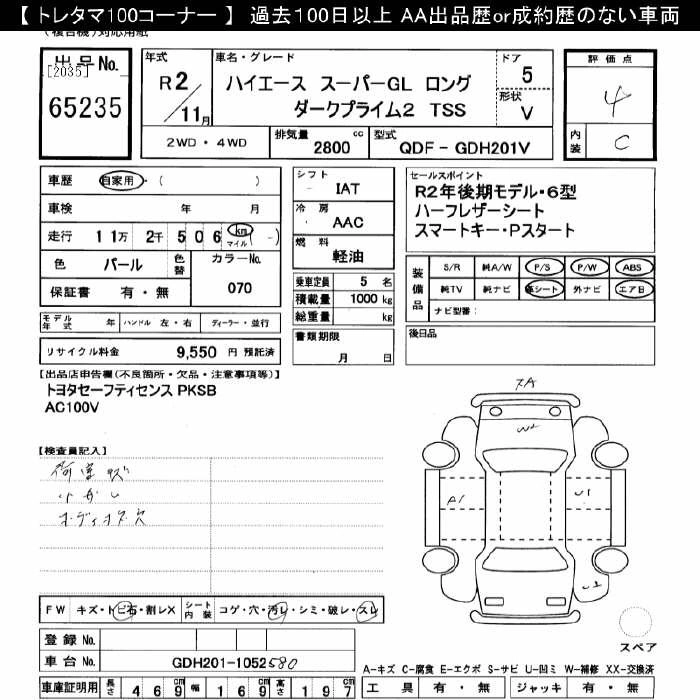 【 トレタマ100コーナー 】 過去100日以上 AA出品歴or成約歴のない車両
(複合機)対応用紙
出品No.
[2035]
65235
年式
R2/11月
車名・グレード
ハイエース スーパーGL ロング
ダークプライム2 TSS
ドア
5
形状
V
評価点
4
内装
C
2WD・4WD
排気量
2800 cc
型式
QDF - GDH201V
車歴 自家用・( )
車検 年 月
走行 11万 2千 5 0 6 km マイル (-)
色 パール 色替 カラーNo.
保証書 有・無 070
シフト
IAT
冷房
AAC
燃料
軽油
乗車定員 5 名
積載量 1000 kg
総重量 kg
書類期限
月 日
セールスポイント
R2年後期モデル・6型
ハーフレザーシート
スマートキー・Pスタート
装備品
S/R 純A/W P/S P/W ABS
純TV 純ナビ 革シート 外ナビ エアB
ナビ型番:
後日品
モデル年式 年 ハンドル 左・右 ディーラー・並行
リサイクル料金 9,550 円 預託済
【出品店申告欄(不良箇所・欠品・注意事項等)】
トヨタセーフティセンス PKSB
AC100V
【検査員記入】
荷室キズ
小かし
オーディオ欠
スA
W2
A1
U1
U1
FW キズ・トビ石・割レX シート内装 コゲ・穴・汚レ・シミ・破レ・スレ
登録No.
車台No. GDH201-1052580
スペア
A-キズ C-腐食 E-エクボ S-サビ U-凹ミ W-補修 XX-交換済
車庫証明用 長さ 4 6 9 cm 幅 1 6 9 cm 高さ 1 9 7 cm
工具 有・無 ジャッキ 有・無